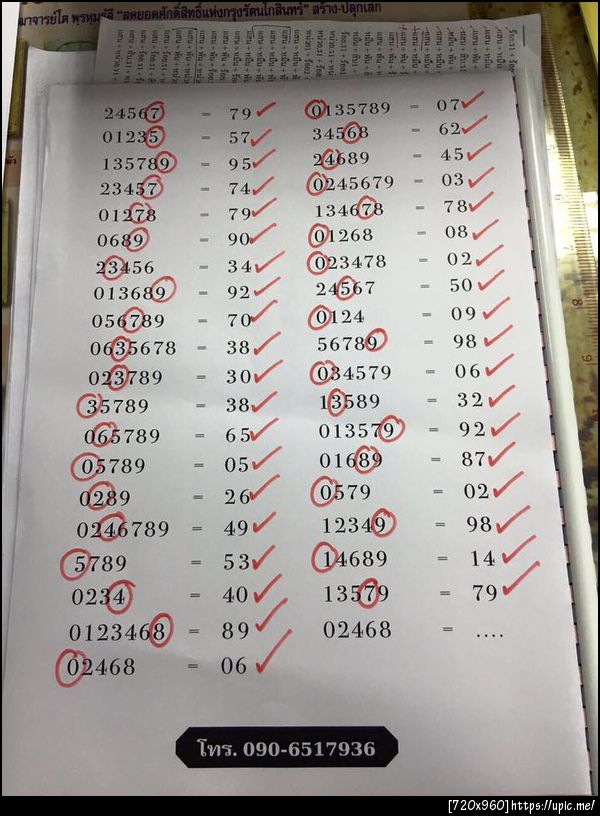 ฒาจารย์โต พรหมรังสี "สุดยอดศักดิ์สิทธิ์แห่งกรุงรัตนโกสินทร์" สร้าง-ปลุกเสก
24567 = 79
01235 = 57
135789 = 95
23457 = 74
01278 = 79
0689 = 90
23456 = 34
013689 = 92
056789 = 70
0635678 = 38
023789 = 30
35789 = 38
065789 = 65
05789 = 05
0289 = 26
0246789 = 49
5789 = 53
0234 = 40
0123468 = 89
02468 = 06
0135789 = 07
34568 = 62
24689 = 45
0245679 = 03
134678 = 78
01268 = 08
023478 = 02
24567 = 50
0124 = 09
56789 = 98
034579 = 06
13589 = 32
013579 = 92
01689 = 87
0579 = 02
12349 = 98
14689 = 14
13579 = 79
02468 = ....
โทร. 090-6517936
[720x960]https://upic.me/